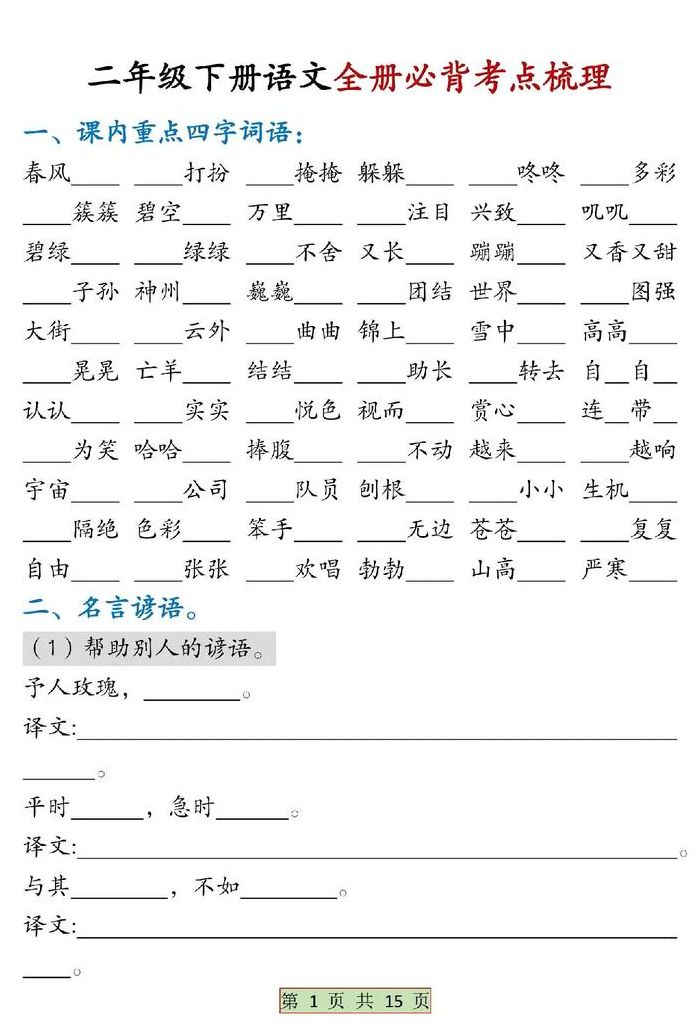 二年级下册语文全册必背考点梳理
一、课内重点四字词语：
春风____ ____打扮 ____掩掩 躲躲____ ____咚咚 ____多彩
____簇簇 碧空____ 万里____ ____注目 兴致____ 叽叽____
碧绿____ ____绿绿 ____不舍 又长____ 蹦蹦____ 又香又甜
____子孙 神州____ 巍巍____ ____团结 世界____ ____图强
大街____ ____云外 ____曲曲 锦上____ 雪中____ 高高____
____晃晃 亡羊____ 结结____ ____助长 ____转去 自__自__
认认____ ____实实 ____悦色 视而____ 赏心____ 连__带__
____为笑 哈哈____ 捧腹____ ____不动 越来____ ____越响
宇宙____ ____公司 ____队员 刨根____ ____小小 生机____
____隔绝 色彩____ 笨手____ ____无边 苍苍____ ____复复
自由____ ____张张 ____欢唱 勃勃____ 山高____ 严寒____
二、名言谚语。
（1）帮助别人的谚语。
予人玫瑰，________。
译文:__________________________________________________
______。
平时______，急时______。
译文:__________________________________________________。
与其________，不如________。
译文:__________________________________________________
____。
第 1 页 共 15 页